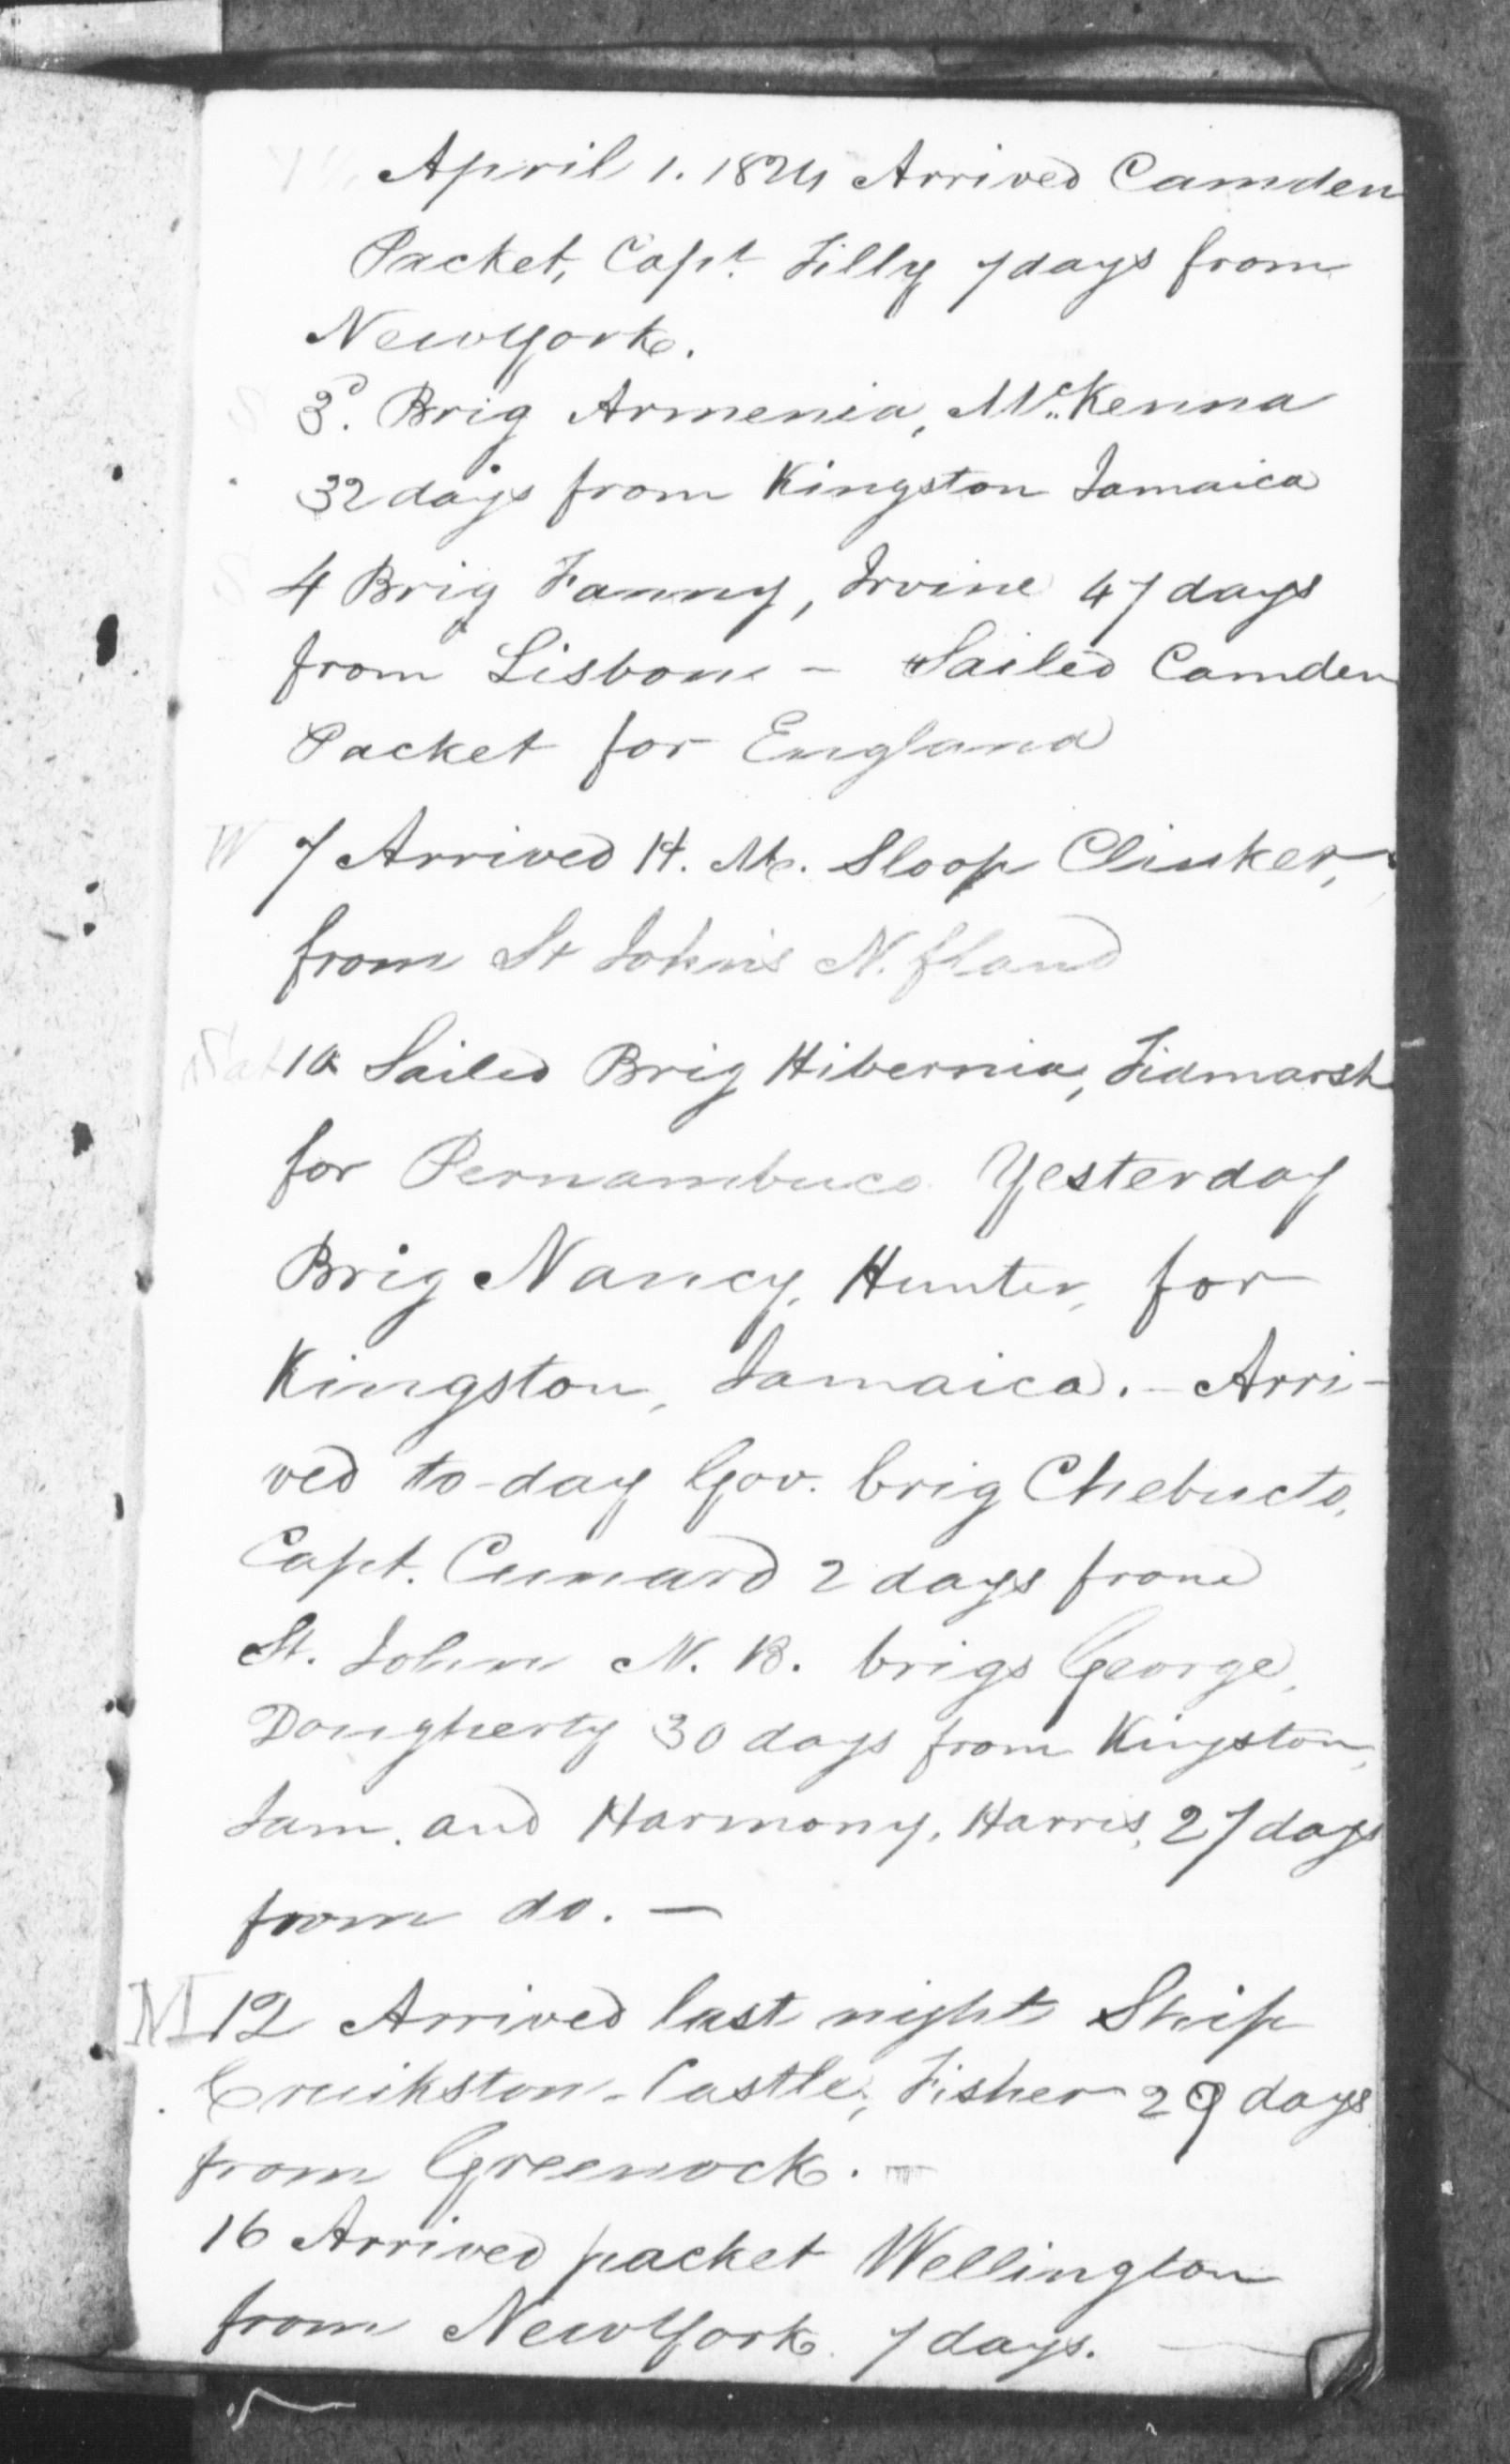 April 1. 1824 Arrived Camden
Packet, Capt. Tilly 7 days from
New York.
3d. Brig Armenia, McKenna
32 days from Kingston Jamaica
S 4 Brig Fanny, Irvine 47 days
from Lisbon - Sailed Camden
Packet for England
W 7 Arrived H. M. Sloop Clinker,
from St John's N. fland
Sat 10 Sailed Brig Hibernia, Tidmarsh
for Pernambuco Yesterday
Brig Nancy, Hunter, for
Kingston, Jamaica. - Arri-
ved to-day Gov. brig Chebucto,
Capt. Cunard 2 days from
St. John N. B. brigs George,
Dougherty 30 days from Kingston,
Jam. and Harmony, Harris, 27 days
from do. -
M 12 Arrived last night Ship
Cruikston-Castle, Fisher 29 days
from Greenock. -
16 Arrived packet Wellington
from New York 7 days.